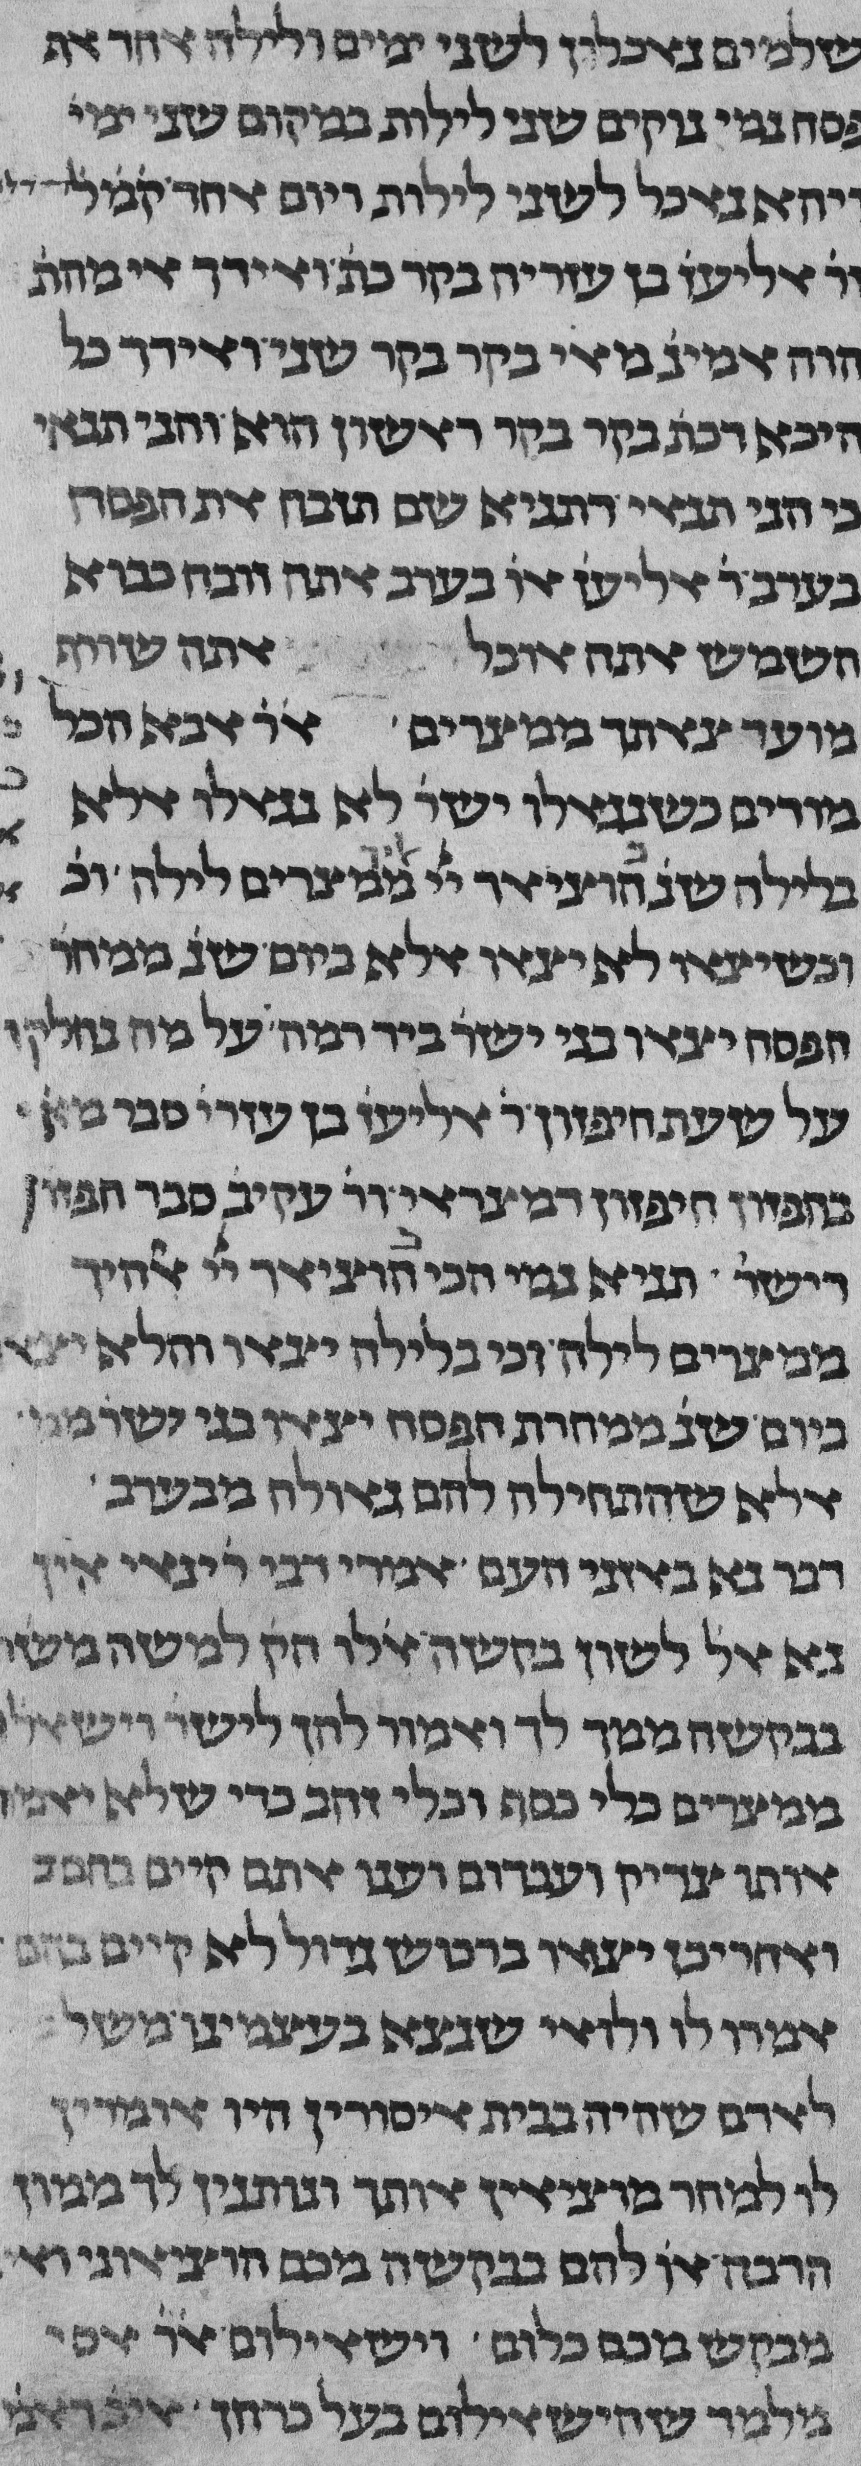 שלמים נאכלין לשני ימים ולילה אחד אף
פסח נמי נוקים שני לילות במקום שני ימי
ויהא נאכל לשני לילות ויום אחד ק̇מ̇ל̇
ור̇ אליעז̇ בן עזריה בקר כת̇ ואידך אי מהת̇
הוה אמינ̇ מאי בקר בקר שני ואידך כל
היכא דכת̇ בקר בקר ראשון הוא והני תנאי
כי הני תנאי דתניא שם תזבח את הפסח
בערב ר̇ אליעז̇ או̇ בערב אתה זובח כבוא
השמש אתה אוכל אתה שורף
מועד צאתך ממצרים א̇ר̇ אבא הכל
מודים כשנגאלו ישר̇ לא נגאלו אלא
בלילה שנ̇ הוציאך ייי ממצרים לילה וכ̇
וכשיצאו לא יצאו אלא ביום שנ̇ ממחר̇
הפסח יצאו בני ישר̇ ביד רמה על מה נחלקו
על שעת חיפזון ר̇ אליעז̇ בן עזרי̇ סבר מאי
בחפזון חיפזון דמצראי ור̇ עקיב̇ סבר חפזון
דישר̇ תניא נמי הכי הוציאך ייי אלהיך
ממצרים לילה וכי בלילה יצאו והלא יצאו
ביום שנ̇ ממחרת הפסח יצאו בני ישר̇
אלא שהתחילה להם גאולה מבערב
דבר נא באזני העם אמרי דבי ר̇ ינאי אין
נא אל̇ לשון בקשה א̇ל̇ו̇ הק̇ למשה משה
בבקשה ממך לך ואמור להן לישר̇ וישאלו
ממצרים כלי כסף וכלי זהב כדי שלא יאמר
אותו צדיק ועבדום וענו אתם קיים בהם
ואחריכן יצאו ברכוש גדול לא קיים בהם
אמרו לו ולואי שנצא בעצמינו משל
לאדם שהיה בבית איסורין היו אומרין
לו למחר מוציאין אותך ונותנין לך ממון
הרבה או̇ להם בבקשה מכם הוציאוני ואיני
מבקש מכם כלום וישאילום א̇ר̇ אסי
מלמד שהישאילום בעל כרחן